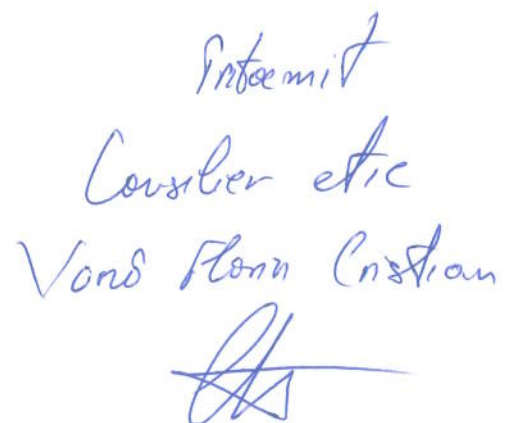 Întocmit
Consilier etic
Florin Cristian